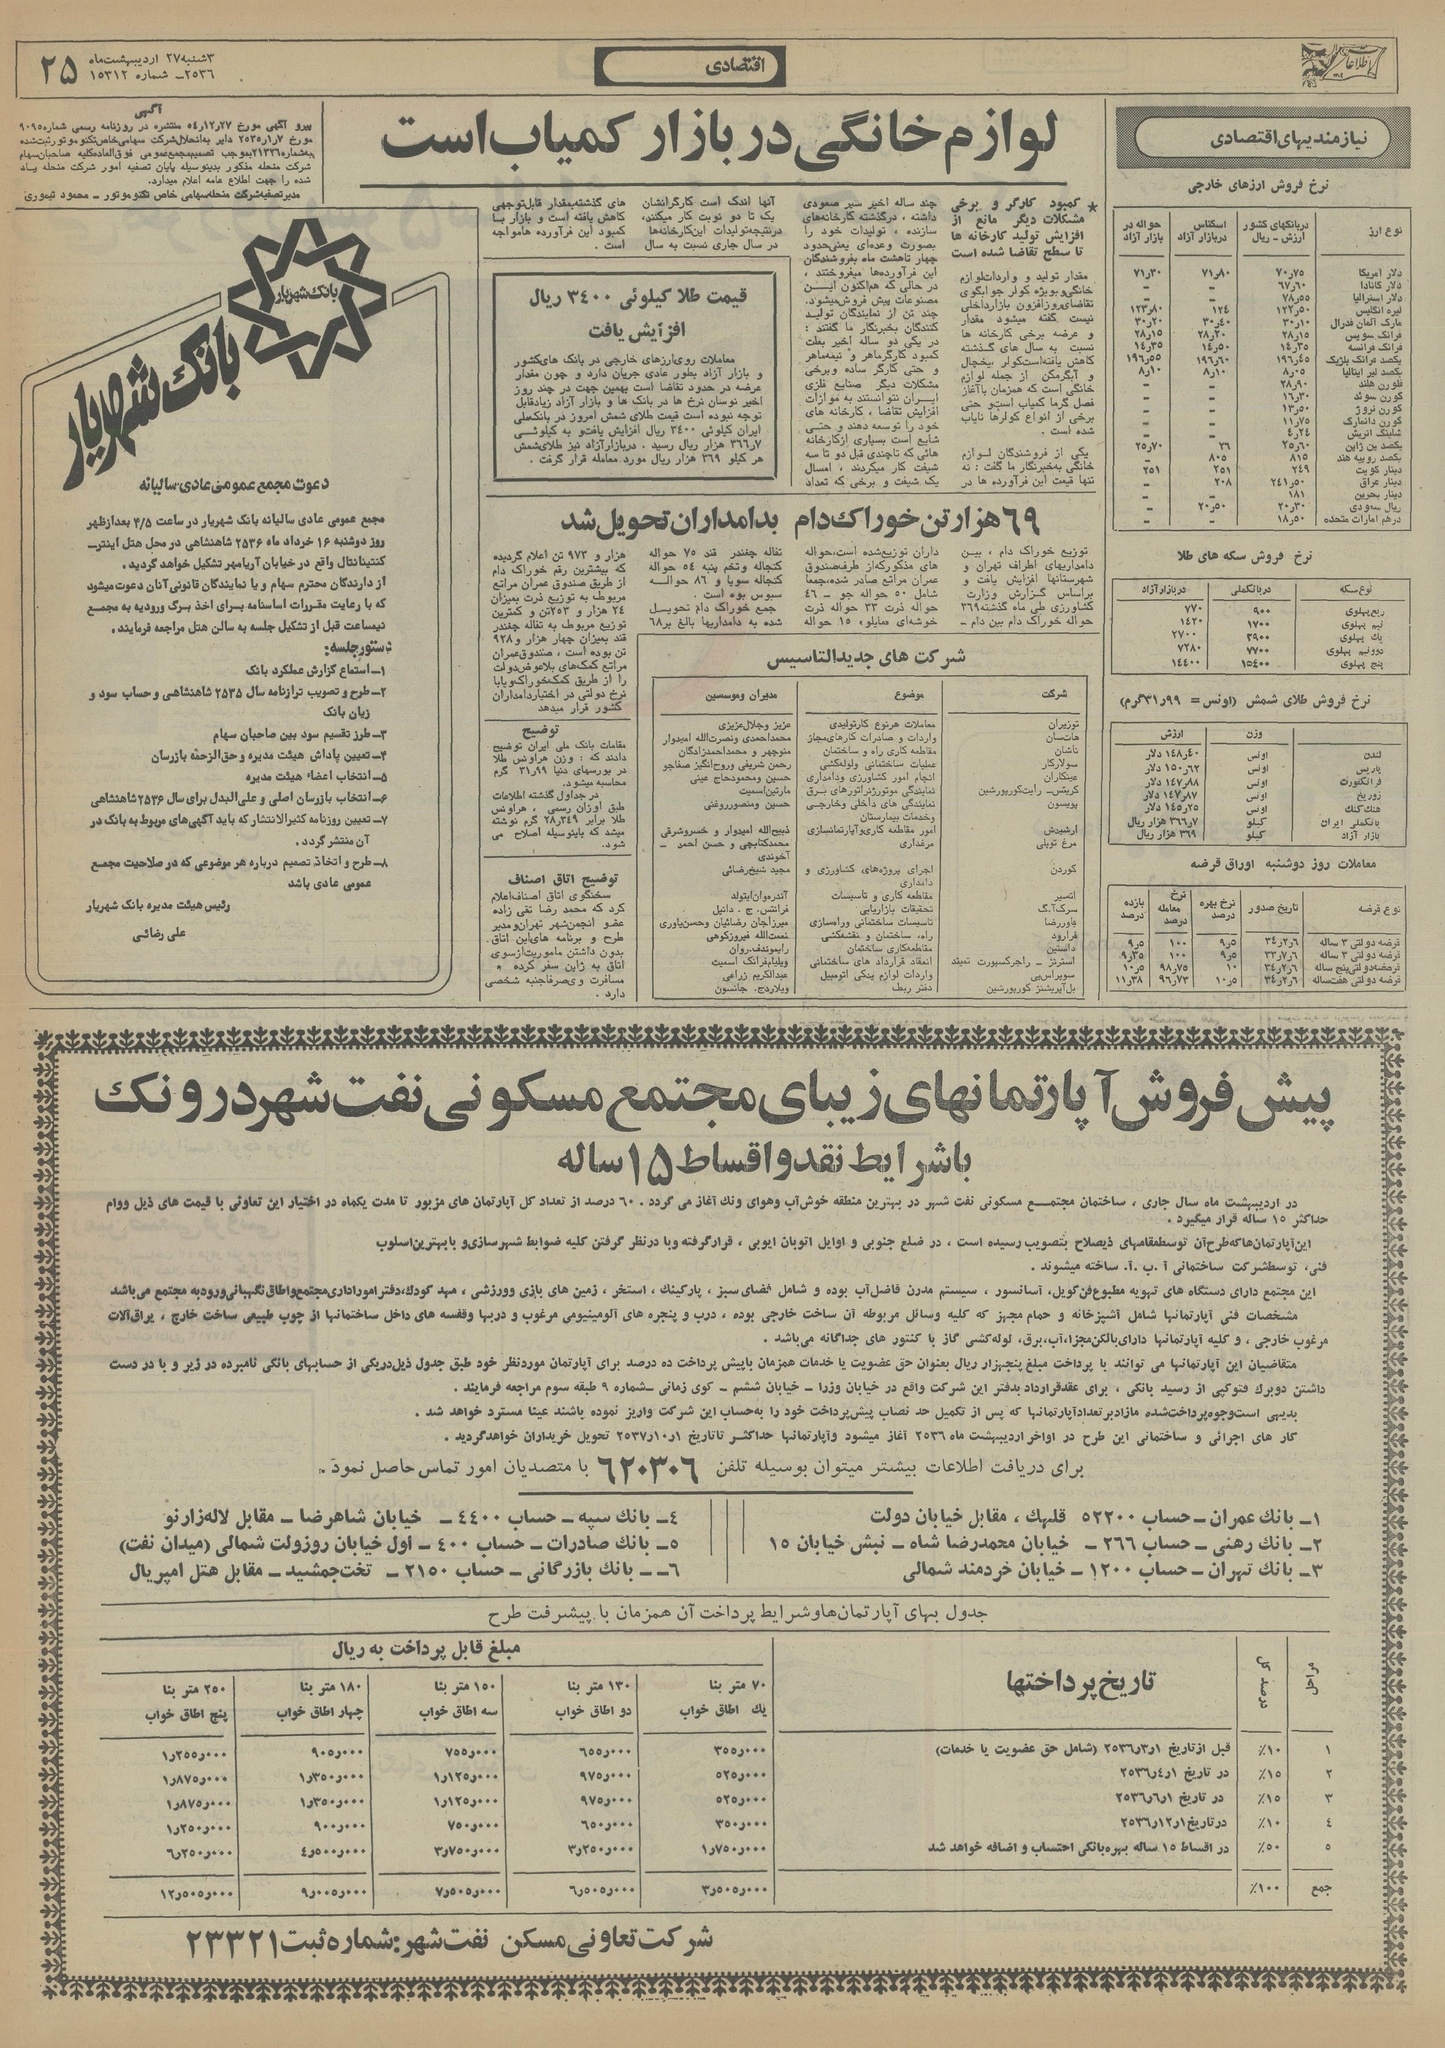 ۳شنبه ۲۷ اردیبهشت‌ماه
۲۵۳۶ـ شماره ۱۵۳۱۲
۲۵
اقتصادی
اطلاعات
نیازمندیهای اقتصادی
نرخ فروش ارزهای خارجی
نوع ارز
دربانکهای کشور ارزش ـ ریال
اسکناس دربازار آزاد
حواله در بازار آزاد
دلار آمریکا ۷۰٫۷۵ ۷۱٫۸۰ ۷۱٫۳۰
دلار کانادا ۶۷٫۶۰ ـ ـ
دلار استرالیا ۷۸٫۵۵ ـ ـ
لیره انگلیس ۱۲۲٫۵۰ ۱۲۴ ۱۲۳٫۸۰
مارک آلمان فدرال ۳۰٫۱۰ ۳۰٫۴۰ ۳۰٫۲۰
فرانک سویس ۲۸٫۱۵ ۲۸٫۲۰ ۲۸٫۱۵
فرانک فرانسه ۱۴٫۳۵ ۱۴٫۵۰ ۱۴٫۳۵
یکصد فرانک بلژیک ۱۹۶٫۴۵ ۱۹۶٫۶۰ ۱۹۶٫۵۵
یکصد لیر ایتالیا ۸٫۰۵ ۸٫۱۰ ۸٫۱۰
فلورن هلند ۲۸٫۹۰
کورن سوئد ۱۶٫۳۰
کورن نروژ ۱۳٫۵۰
کورن دانمارک ۱۱٫۷۵
شلینگ اتریش ۴٫۲۴
یکصد ین ژاپن ۲۵٫۶۰ ۲۶ ۲۵٫۷۰
یکصد روپیه هند ۸۱۵ ۸۰۵ ـ
دینار کویت ۲۴۹ ۲۵۱ ۲۵۱
دینار عراق ۲۴۱٫۵۰ ۲۰۸ ـ
دینار بحرین ۱۸۱ ـ ـ
ریال سعودی ۲۰٫۳۰ ۲۰٫۵۰ ـ
درهم امارات متحده ۱۸٫۵۰ ـ ـ
نرخ فروش سکه های طلا
نوع سکه دربانکملی دربازار آزاد
ربع پهلوی ۹۰۰ ۷۷۰
نیم پهلوی ۱۷۰۰ ۱۴۲۰
یک پهلوی ۲۹۰۰ ۲۷۰۰
دوونیم پهلوی ۷۷۰۰ ۷۲۸۰
پنج پهلوی ۱۵۴۰۰ ۱۴۴۰۰
نرخ فروش طلای شمش (اونس = ۳۱٫۹۹گرم)
وزن ارزش
لندن اونس ۱۴۸٫۴۰ دلار
پاریس اونس ۱۵۰٫۶۲ دلار
فرانکفورت اونس ۱۴۷٫۸۸ دلار
زوریخ اونس ۱۴۷٫۸۷ دلار
هنک‌کنک اونس ۱۴۵٫۲۵ دلار
بانکملی ایران کیلو ۳۶۶٫۷ هزار ریال
بازار آزاد کیلو ۳۶۹ هزار ریال
معاملات روز دوشنبه اوراق قرضه
نوع قرضه تاریخ صدور نرخ بهره درصد نرخ معامله درصد بازده درصد
قرضه دولتی ۳ ساله ۳۴٫۲٫۶ ۹٫۵ ۱۰۰ ۹٫۵
قرضه دولتی ۳ ساله ۳۳٫۷٫۶ ۹٫۵ ۱۰۰ ۹٫۳۵
قرضه‌دولتی‌پنج ساله ۳۴٫۲٫۶ ۱۰ ۹۸٫۷۵ ۱۰٫۵
قرضه دولتی هفت‌ساله ۳۴٫۲٫۶ ۱۰٫۵ ۹۶٫۷۳ ۱۱٫۳۸
لوازم خانگی در بازار کمیاب است
* کمبود کارگر و برخی
مشکلات دیگر مانع از
افزایش تولید کارخانه ها
تا سطح تقاضا شده است
مقدار تولید و واردات‌لوازم
خانگی‌وبویژه کولر جوابگوی
تقاضای‌روزافزون بازارداخلی
نیست گفته میشود مقدار
و عرضه برخی کارخانه ها
نسبت به سال های گذشته
کاهش یافته‌است‌کولر ،یخچال
و آبگرمکن از جمله لوازم
خانگی است که همزمان باآغاز
فصل گرما کمیاب است‌و حتی
برخی از انواع کولرها نایاب
شده است .
یکی از فروشندگان لوازم
خانگی به‌خبرنگار ما گفت : نه
تنها قیمت این فرآورده ها در
چند ساله اخیر سیر صعودی
داشته ، درگذشته کارخانه‌های
سازنده ، تولیدات خود را
بصورت وعده‌ای یعنی‌حدود
چهار تاهشت ماه بفروشندگان
این فرآورده‌ها میفروختند ،
در حالی که هم‌اکنون این
مصنوعات پیش فروش‌میشود.
چند تن از نمایندگان تولید
کنندگان بخبرنگار ما گفتند :
در یکی دو ساله اخیر بعلت
کمبود کارگرماهر و نیمه‌ماهر
و حتی کارگر ساده و برخی
مشکلات دیگر صنایع فلزی
ایران نتوانستند به موازات
افزایش تقاضا ، کارخانه های
خود را توسعه دهند و حتی
شایع است بسیاری ازکارخانه
هائی که تاچندی قبل دو تا سه
شیفت کار میکردند ، امسال
یک شیفت و برخی که تعداد
آنها اندک است کارگرانشان
یک تا دو نوبت کار میکنند،
درنتیجه‌تولیدات این‌کارخانه‌ها
در سال جاری نسبت به سال
های گذشته‌بمقدار قابل‌توجهی
کاهش یافته است و بازار بـا
کمبود این فرآورده هامواجه
است .
قیمت طلا کیلوئی ۳۴۰۰ ریال
افزایش یافت
معاملات روی‌ارزهای خارجی در بانک های‌کشور
و بازار آزاد بطور عادی جریان دارد و چون مقدار
عرضه در حدود تقاضا است بهمین جهت در چند روز
اخیر نوسان نرخ ها در بانک ها و بازار آزاد زیادقابل
توجه نبوده است قیمت طلای شمش امروز در بانک‌ملی
ایران کیلوئی ۳۴۰۰ ریال افزایش یافت‌و به کیلوئـی
۳۶۶٫۷ هزار ریال رسید . دربازار آزاد نیز طلای‌شمش
هر کیلو ۳۶۹ هزار ریال مورد معامله قرار گرفت .
۶۹ هزار تن خوراک دام بدامداران تحویل شد
توزیع خوراک دام ، بین
دامداریهای اطراف تهران و
شهرستانها افزایش یافت و
براساس گزارش وزارت
کشاورزی طی ماه گذشته۳۶۹
حواله خوراک دام بین دام ـ
داران توزیع‌شده است،حواله
های مذکورکه‌از طرف‌صندوق
عمران مراتع صادر شده،جمعا
شامل ۵۰ حواله جو ـ ۴۶
حواله ذرت ۳۳ حواله ذرت
خوشه‌ای «مایلو» ۱۵ حواله
تفاله چغندر قند ۷۵ حواله
کنجاله وتخم پنبه ۵۴ حواله
کنجاله سویا و ۸۶ حوالـه
سبوس بوه است .
جمع خوراک دام تحویـل
شده به دامداریها بالغ بر۶۸
هزار و ۹۷۳ تن اعلام گردیده
که بیشترین رقم خوراک دام
از طریق صندوق عمران مراتع
مربوط به توزیع ذرت بمیزان
۲۴ هزار و ۲۰۳تن و کمترین
توزیع مربوط به تفاله چغندر
قند بمیزان چهار هزار و ۹۲۸
تن بوده است ، صندوق‌عمران
مراتع کمک‌های بلاعوض‌دولت
را از طریق کمک‌خوراک‌ویابا
نرخ دولتی در اختیاردامداران
کشور قرار میدهد
توضیح
مقامات بانک ملی ایران توضیح
دادند که : وزن هراونس طلا
در بورسهای دنیا ۳۱٫۹۹ گرم
محاسبه میشود.
در جداول گذشته اطلاعات
طبق اوزان رسمی ، هراونس
طلا برابر ۲۸٫۳۴۹ گرم نوشته
میشد که بدینوسیله اصلاح می
شود.
توضیح اتاق اصناف
سخنگوی اتاق اصناف‌اعلام
کرد که محمد رضا تقی زاده
عضو انجمن‌شهر تهران‌ومدیر
طرح و برنامه های‌این اتاق،
بدون داشتن ماموریت‌ازسوی
اتاق به ژاپن سفر کرده و
مسافرت وی‌صرفاجنبه شخصی
دارد .
شرکت های جدیدالتاسیس
شرکت موضوع مدیران وموسسین
توزیران معاملات هرنوع کارتولیدی عزیز وجلال‌عزیزی
هات‌سان واردات و صادرات کارهای‌مجاز محمداحمدی ونصرت‌الله امیدوار
تاشان مقاطعه کاری راه و ساختمان منوچهر و محمداحمدزادگان
سولارکار عملیات ساختمانی ولوله‌کشی رحمن شریفی وروح‌انگیز صفاجو
عینکاران انجام امور کشاورزی ودامداری حسین ومحمودحاج عینی
کریتش‌ـ رایت‌کورپورشین نمایندگی موتورژنراتورهای برق مارتین‌اسمیت
پویسون نمایندگی های داخلی وخارجی ـ وخدمات بیمارستان حسین ومنصورروغنی
ارشیدش امور مقاطعه کاری‌وآپارتمانسازی ذبیح‌الله امیدوار و خسروشرقی
مرغ تویلی مرغداری محمدکتابچی و حسن احمد ـ آخوندی
کوردن اجرای پروژه‌های کشاورزی و دامداری مجید شیخ‌رضائی
اتسیر مقاطعه کاری و تأسیسات آندره‌وان‌ایتولد
سرک‌آ.گ تحقیقات بازاریابی فرانتس. ج. دانیل
داوررضا تاسیسات ساختمانی وراه‌سازی میرزاجان رضائیان وحسن‌یاوری
فرارود راه، ساختمان و نقشه‌کشی نعمت‌الله فیروزکوهی
داستین مقاطعه‌کاری ساختمان رایموندف‌روان
استرنژ ـ راجرکسپورت تمیتد انعقاد قرارداد های ساختمانی ویلیام‌فرانک اسمیت
سوپراس‌پی واردات لوازم یدکی اتومبیل عبدالکریم زراعی
بل‌آپریشنز کورپورشین دفتر ربط ویلاردج. جانسون
آگهی
پیرو آگهی مورخ ۵۴٫۱۲٫۲۷ منتشره در روزنامه رسمی شماره۹۰۹۵
مورخ ۲۵۳۵٫۱٫۷ دایر به‌انحلال‌شرکت سهامی‌خاص‌تکنوموتورثبت‌شده
به‌شماره۲۱۳۳۶بموجب تصمیم‌مجمع‌عمومی فوق‌العاده‌کلیه صاحبان‌سهام
شرکت منحله مذکور بدینوسیله پایان تصفیه امور شرکت منحله یـاد
شده را جهت اطلاع عامه اعلام میدارد.
مدیرتصفیه‌شرکت منحله‌سهامی خاص تکنوموتور ـ محمود تیموری
بانک شهریار
بانک شهریار
دعوت مجمع عمومی عادی سالیانه
مجمع عمومی عادی سالیانه بانک شهریار در ساعت ۴/۵ بعدازظهر
روز دوشنبه ۱۶ خرداد ماه ۲۵۳۶ شاهنشاهی در محل هتل اینترـ
کنتیننتال واقع در خیابان آریامهر تشکیل خواهد گردید.
از دارندگان محترم سهام و یا نمایندگان قانونی آنان دعوت میشود
که با رعایت مقررات اساسنامه برای اخذ برگ ورودیه به مجمع
نیمساعت قبل از تشکیل جلسه به سالن هتل مراجعه فرمایند.
دستور جلسه:
۱ـ استماع گزارش عملکرد بانک
۲ـ طرح و تصویب ترازنامه سال ۲۵۳۵ شاهنشاهی و حساب سود و
زیان بانک
۳ـ طرز تقسیم سود بین صاحبان سهام
۴ـ تعیین پاداش هیئت مدیره و حق‌الزحمه بازرسان
۵ـ انتخاب اعضاء هیئت مدیره
۶ـ انتخاب بازرسان اصلی و علی‌البدل برای سال ۲۵۳۶شاهنشاهی
۷ـ تعیین روزنامه کثیرالانتشار که باید آگهی‌های مربوط به بانک در
آن منتشر گردد.
۸ـ طرح و اتخاذ تصمیم درباره هر موضوعی که در صلاحیت مجمع
عمومی عادی باشد
رئیس هیئت مدیره بانک شهریار
علی رضائی
پیش فروش آپارتمانهای زیبای مجتمع مسکونی نفت شهر در ونک
با شرایط نقد و اقساط ۱۵ ساله
در اردیبهشت ماه سال جاری ، ساختمان مجتمـع مسکونی نفت شهر در بهترین منطقه خوش‌آب وهوای ونک آغاز می گردد . ۶۰ درصد از تعداد کل آپارتمان های مزبور تا مدت یکماه در اختیار این تعاونی با قیمت های ذیل ووام
حداکثر ۱۵ ساله قرار میگیرد .
این‌آپارتمان‌هاکه‌طرح‌آن توسط‌مقامهای ذیصلاح بتصویب رسیده است ، در ضلع جنوبی و اوایل اتوبان ایوبی ، قرارگرفته وبا درنظر گرفتن کلیه ضوابط شهرسازی‌و بابهترین‌اسلوب
فنی، توسط‌شرکت ساختمانی آ .ب .آ. ساخته میشوند .
این مجتمع دارای دستگاه های تهویه مطبوع‌فن‌کویل، آسانسور ، سیستم مدرن فاضل‌آب بوده و شامل فضای سبز ، پارکینک ، استخر ، زمین های بازی وورزشی ، مهد کودک،دفتر اموراداری‌مجتمع‌واطاق‌نگهبانی‌ورودبه مجتمع می‌باشد
مشخصات فنی آپارتمانها شامل آشپزخانه و حمام مجهز که کلیه وسائل مربوطه آن ساخت خارجی بوده ، درب و پنجره های آلومینیومی مرغوب و دربها وقفسه های داخل ساختمانها از چوب طبیعی ساخت خارج ، یراق‌آلات
مرغوب خارجی ، و کلیه آپارتمانها دارای‌بالکن‌مجزا،آب،برق، لوله‌کشی گاز با کنتور های جداگانه می‌باشد .
متقاضیان این آپارتمانها می توانند با پرداخت مبلغ پنجهزار ریال بعنوان حق عضویت یا خدمات همزمان باپیش پرداخت ده درصد برای آپارتمان موردنظر خود طبق جدول ذیل‌دریکی از حسابهای بانکی نامبرده در زیر و با در دست
داشتن دوبرک فتوکپی از رسید بانکی ، برای عقدقرارداد بدفتر این شرکت واقع در خیابان وزرا ـ خیابان ششم ـ کوی زمانی ـشماره ۹ طبقه سوم مراجعه فرمایند .
بدیهی است‌وجوه‌پرداخت‌شده مازادبرتعدادآپارتمانها که پس از تکمیل حد نصاب پیش‌پرداخت خود را به‌حساب این شرکت واریز نموده باشند عینا مسترد خواهد شد .
کار های اجرائی و ساختمانی این طرح در اواخر اردیبهشت ماه ۲۵۳۶ آغاز میشود وآپارتمانها حداکثر تاتاریخ ۲۵۳۷٫۱۰٫۱ تحویل خریداران خواهدگردید .
برای دریافت اطلاعات بیشتر میتوان بوسیله تلفن ۶۲۰۳۰۶ با متصدیان امور تماس حاصل نمود .
۱ـ بانک عمران ـ حساب ۵۲۲۰۰ قلهک ، مقابل خیابان دولت
۲ـ بانک رهنی ـ حساب ۲۶۶ ـ خیابان محمدرضا شاه ـ نبش خیابان ۱۵
۳ـ بانک تهران ـ حساب ۱۲۰۰ ـ خیابان خردمند شمالی
۴ـ بانک سپه ـ حساب ۴۴۰۰ ـ خیابان شاهرضا ـ مقابل لاله‌زارنو
۵ـ بانک صادرات ـ حساب ۴۰۰ ـ اول خیابان روزولت شمالی (میدان نفت)
۶ـ بانک بازرگانی ـ حساب ۲۱۵۰ ـ تخت‌جمشید ـ مقابل هتل امپریال
جدول بهای آپارتمان‌هاوشرایط پرداخت آن همزمان با پیشرفت طرح
مراحل درصد کل تاریخ پرداختها مبلغ قابل پرداخت به ریال
۷۰ متر بنا یک اطاق خواب
۱۳۰ متر بنا دو اطاق خواب
۱۵۰ متر بنا سه اطاق خواب
۱۸۰ متر بنا چهار اطاق خواب
۲۵۰ متر بنا پنج اطاق خواب
۱ ٪۱۰ قبل ازتاریخ ۲۵۳۶٫۳٫۱ (شامل حق عضویت یا خدمات) ۳۵۵٫۰۰۰ ۶۵۵٫۰۰۰ ۷۵۵٫۰۰۰ ۹۰۵٫۰۰۰ ۱٫۲۵۵٫۰۰۰
۲ ٪۱۵ در تاریخ ۲۵۳۶٫۴٫۱ ۵۲۵٫۰۰۰ ۹۷۵٫۰۰۰ ۱٫۱۲۵٫۰۰۰ ۱٫۳۵۰٫۰۰۰ ۱٫۸۷۵٫۰۰۰
۳ ٪۱۵ در تاریخ ۲۵۳۶٫۶٫۱ ۵۲۵٫۰۰۰ ۹۷۵٫۰۰۰ ۱٫۱۲۵٫۰۰۰ ۱٫۳۵۰٫۰۰۰ ۱٫۸۷۵٫۰۰۰
۴ ٪۱۰ درتاریخ ۲۵۳۶٫۱۲٫۱ ۳۵۰٫۰۰۰ ۶۵۰٫۰۰۰ ۷۵۰٫۰۰۰ ۹۰۰٫۰۰۰ ۱٫۲۵۰٫۰۰۰
۵ ٪۵۰ در اقساط ۱۵ ساله بهره‌بانکی احتساب و اضافه خواهد شد ۱٫۷۵۰٫۰۰۰ ۳٫۲۵۰٫۰۰۰ ۳٫۷۵۰٫۰۰۰ ۴٫۵۰۰٫۰۰۰ ۶٫۲۵۰٫۰۰۰
جمع ٪۱۰۰ ۳٫۵۰۵٫۰۰۰ ۶٫۵۰۵٫۰۰۰ ۷٫۵۰۵٫۰۰۰ ۹٫۰۰۵٫۰۰۰ ۱۲٫۵۰۵٫۰۰۰
شرکت تعاونی مسکن نفت شهر: شماره ثبت ۲۳۳۲۱